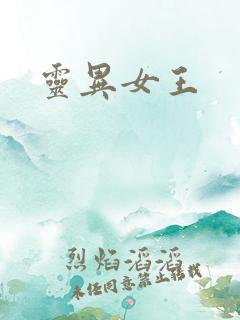 靈異女王
烈焰滔滔
未經同意禁止轉載